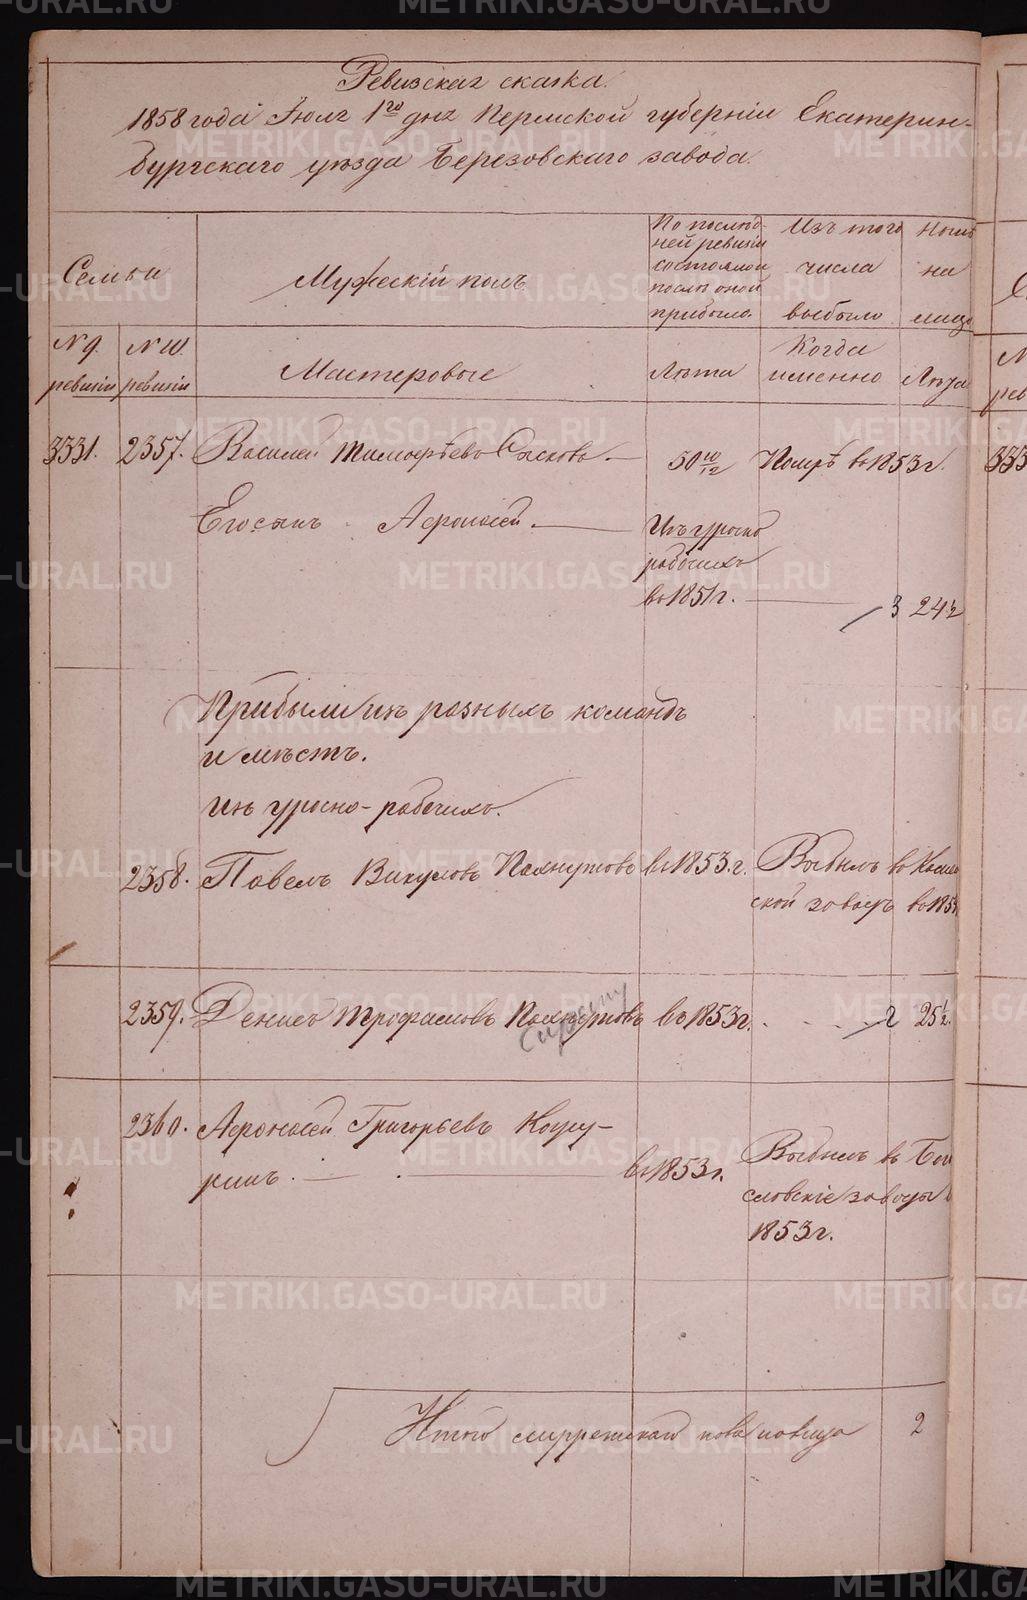 Ревизская сказка.
1858 года Июля 1го дня Пермской губерніи Екатерин-
бургскаго уѣзда Березовскаго завода.
Семьи
Мужескій полъ
По послѣд-
ней ревизіи
состояло и
послѣ оной
прибыло.
Изъ того
числа
выбыло
Нынѣ
на
лицо
N 9.
ревизіи
N 10.
ревизіи
Мастеровые
Лѣта
Когда
именно
Лѣта
3331. 2357. Василей Тимофѣевъ 50 10/12 Помрѣ въ 1853 г.
Его сынъ Афонасей.
Изъ урочно
рабочихъ
въ 1851 г. 3 24 1/2
Прибыли изъ разныхъ командъ
и мѣстъ.
Изъ урочно-рабочихъ.
2358. Павелъ Викуловъ Пахнутовъ въ 1853 г. Выбылъ въ
ской заводъ въ
2359. Денисъ Трофимовъ Пахнутовъ въ 1853 г. 2 25 1/2.
2360. Афонасей Григорьевъ
въ 1853 г.
Выбылъ въ Бого
словскіе заводы
1853 г.
Итого мужескаго пола на лицо 2
METRIKI.GASO-URAL.RU